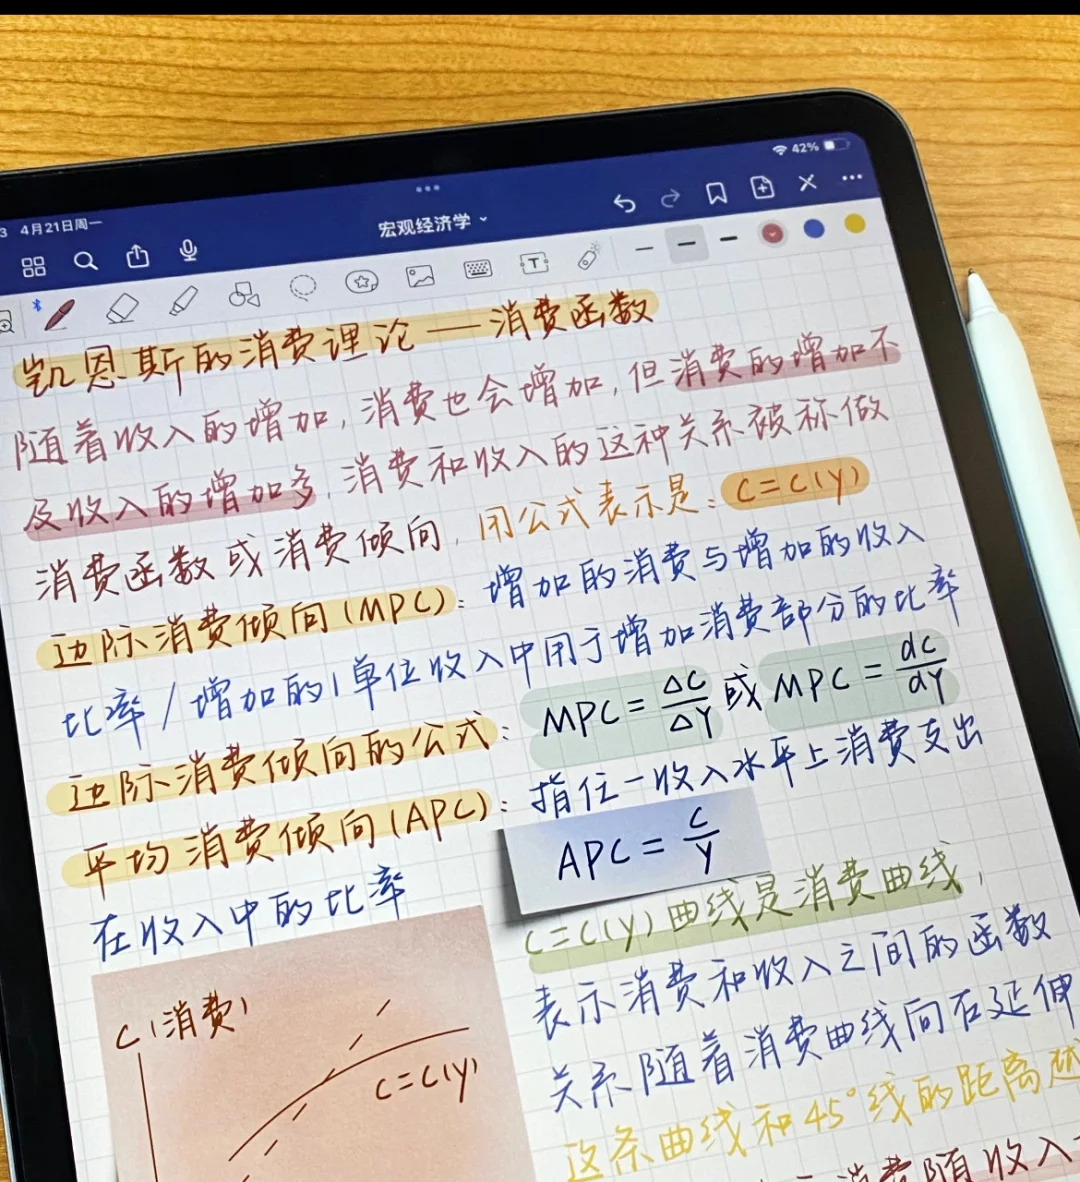 3 4月21日周一
42%
宏观经济学
凯恩斯的消费理论——消费函数
随着收入的增加,消费也会增加,但消费的增加不
及收入的增加多,消费和收入的这种关系被称做
消费函数或消费倾向,用公式表示是:C=C(Y)
边际消费倾向(MPC):增加的消费与增加的收入
比率/增加的1单位收入中用于增加消费部分的比率
边际消费倾向的公式:MPC=ΔC/ΔY或MPC=dC/dY
平均消费倾向(APC):指任一收入水平上消费支出
在收入中的比率
APC=C/Y
C=C(Y)曲线是消费曲线,
表示消费和收入之间的函数
关系随着消费曲线向右延伸
这条曲线和45°线的距离越
消费随收入
C(消费)
C=C(Y)